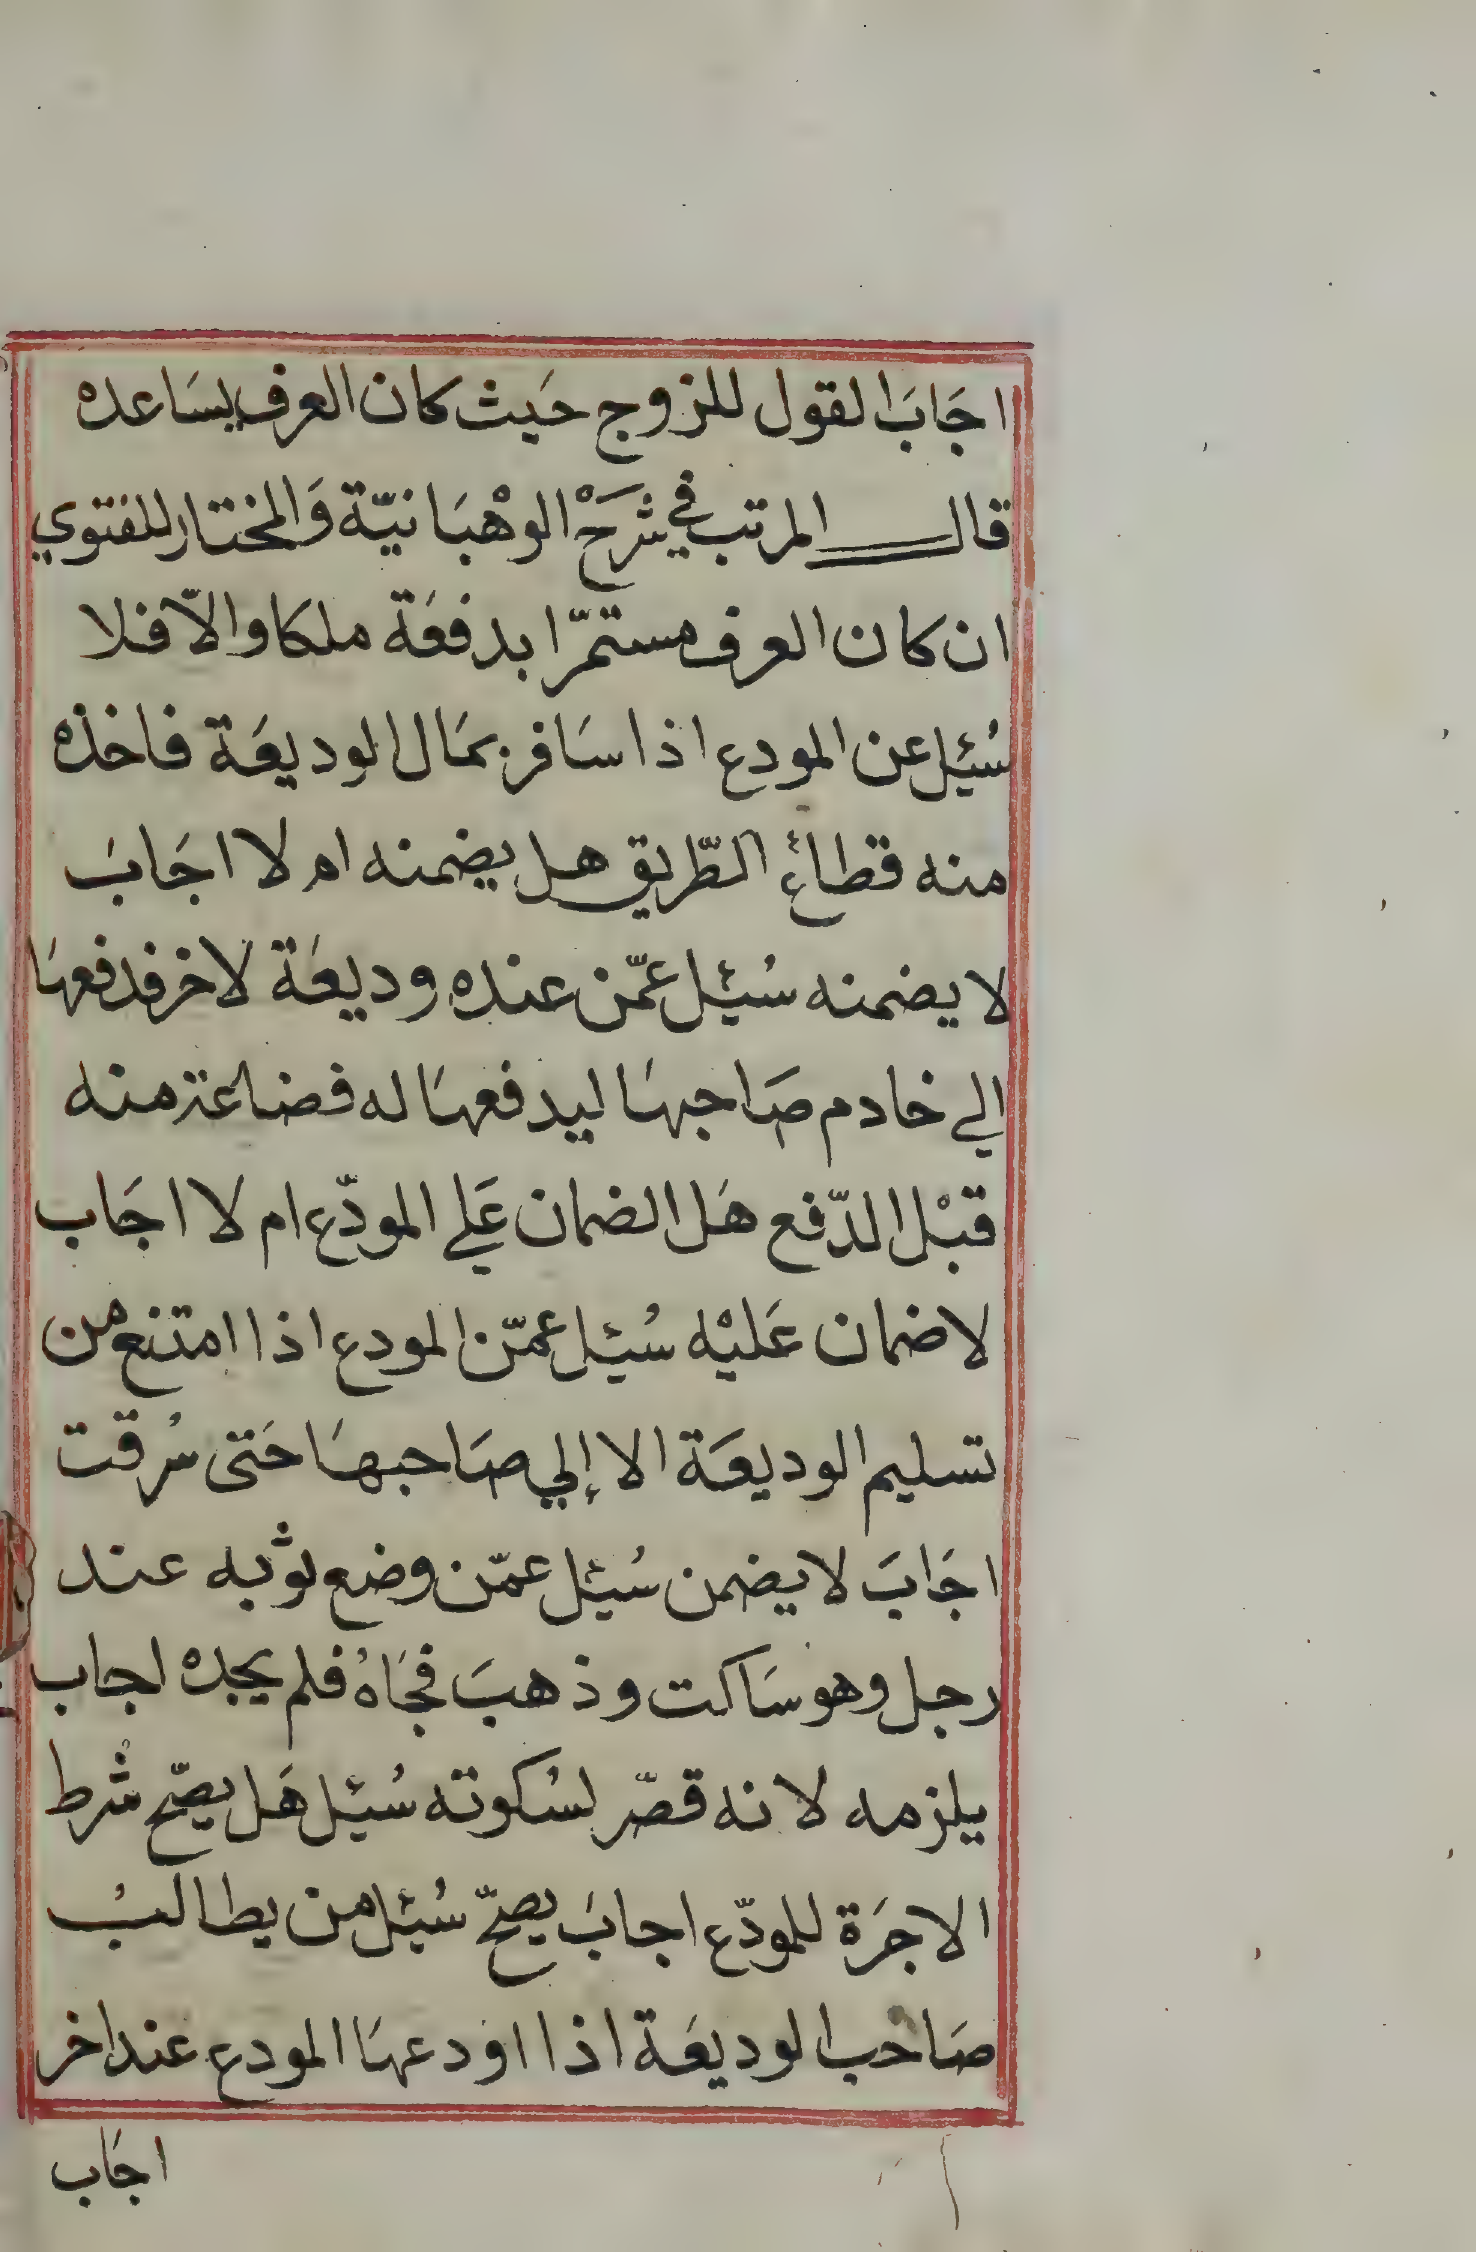 اجَابَ القول للزوج حَيث كان العرف يسَاعده
قال المرتب في شَرَحْ الوهْبَانيّة وَالمختار للفتوي
ان كان العرف مستمرّا بدفعَة ملكا والاّ فلا
سُئِل عن المودع اذا سَافر بمَال الوديعَة فاخذه
منه قطاعُ الطّريق هل يضمنه ام لا اجَابَ
لا يضمنه سُئِل عمّن عنده وديعَة لاخر فدفعهَا
الي خادم صَاحبهَا ليدفعهَا له فضاعَة منه
قبْل الدّفع هَل الضمان عَلي المودّع ام لا اجَاب
لا ضمان عَليْه سُئِل عمّن المودع اذا امتنع من
تسليم الوديعَة الا إلي صَاحبهَا حَتى سُرقت
اجَابَ لا يضمن سُئِل عمّن وضع ثوبه عند
رجل وهو سَاكت وذهبَ فجَاهُ فلم يجده اجاب
يلزمه لانه قصّر لسُكوته سُئِل هَل يصّح شرط
الاجرَة للمودّع اجابَ يصحّ سُئِل من يطالبُ
صَاحب الوديعَة اذا اودعهَا المودع عند اخر
اجَاب